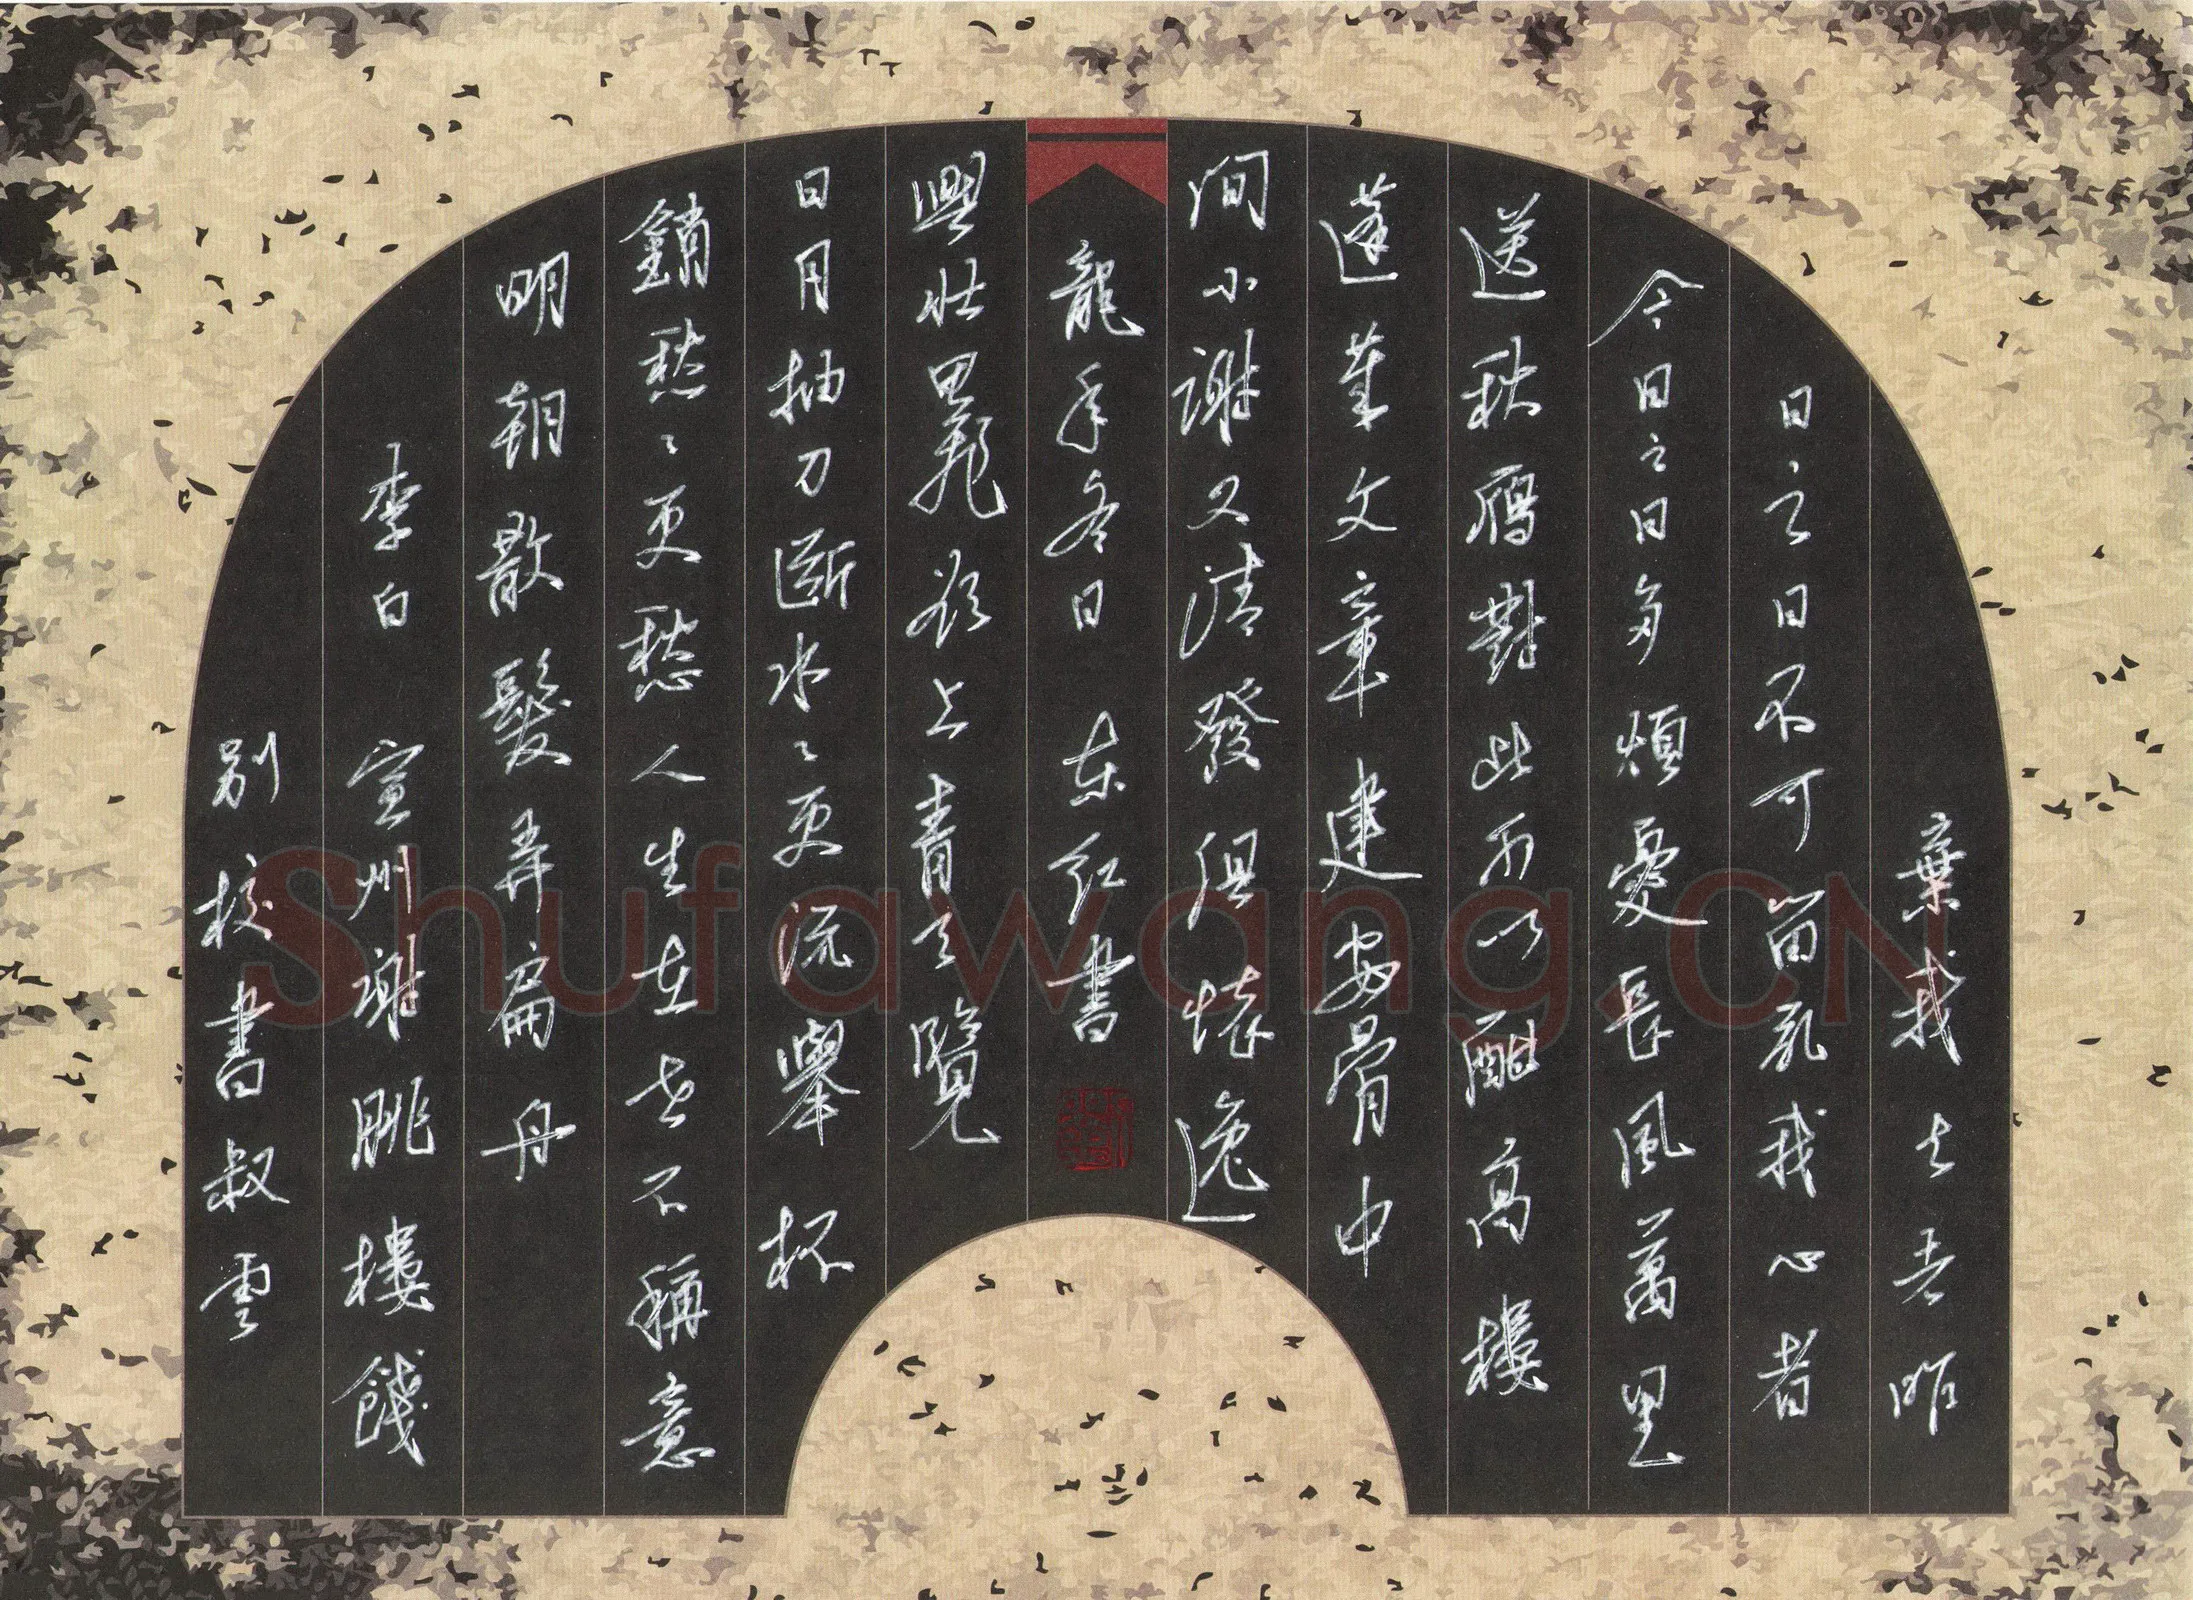 棄我去者昨
日之日不可留亂我心者
今日之日多煩憂長風萬里
送秋鴈對此可以酣高樓
蓬萊文章建安骨中
间小謝又清發俱懷逸
龍年冬日 东红書
興壯思飛欲上青天覽
日月抽刀斷水〻更流舉杯
銷愁〻更愁人生在世不稱意
明朝散髮弄扁舟
李白 宣州謝朓樓餞
別校書叔雲
Shufawang.CN